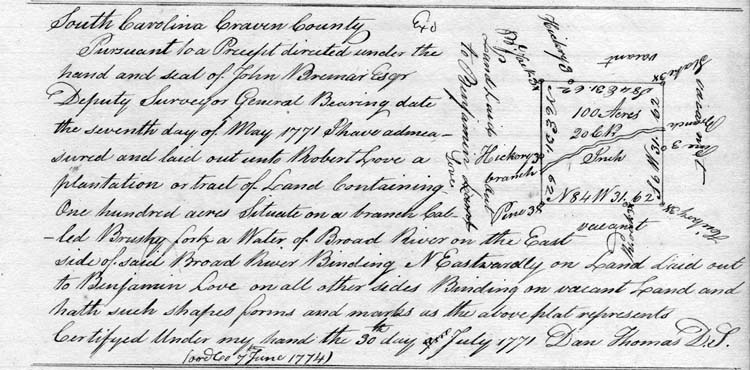 South Carolina Craven County
Exd
Pursuant to a Precept directed under the
hand and seal of John Bremar Esqr
Deputy Surveyor General Bearing date
the seventh day of May 1771 I have admea-
sured and laid out unto Robert Love a
plantation or tract of Land Containing
One hundred acres Situate on a branch Cal-
-led Brushy fork a Water of Broad River on the East
side of said Broad River Binding N Eastwardly on Land Laid out
to Benjamin Love on all other sides Binding on vacant Land and
hath such shapes forms and marks as the above plat represents
Certifyed Under my hand the 30th day of July 1771 Dan Thomas D.S.
(ord Co 7th June 1774)
Land Laid out
to Benjamin Love
Hickory 3
vacant
Stake 3x
vacant
S 84 E 31.62
N 6 E 31.62
100 Acres
20 Ch
Inch
Branch
Hickory 3x
branch
Pine 3x
N 84 W 31.62
vacant
Hickory 3x